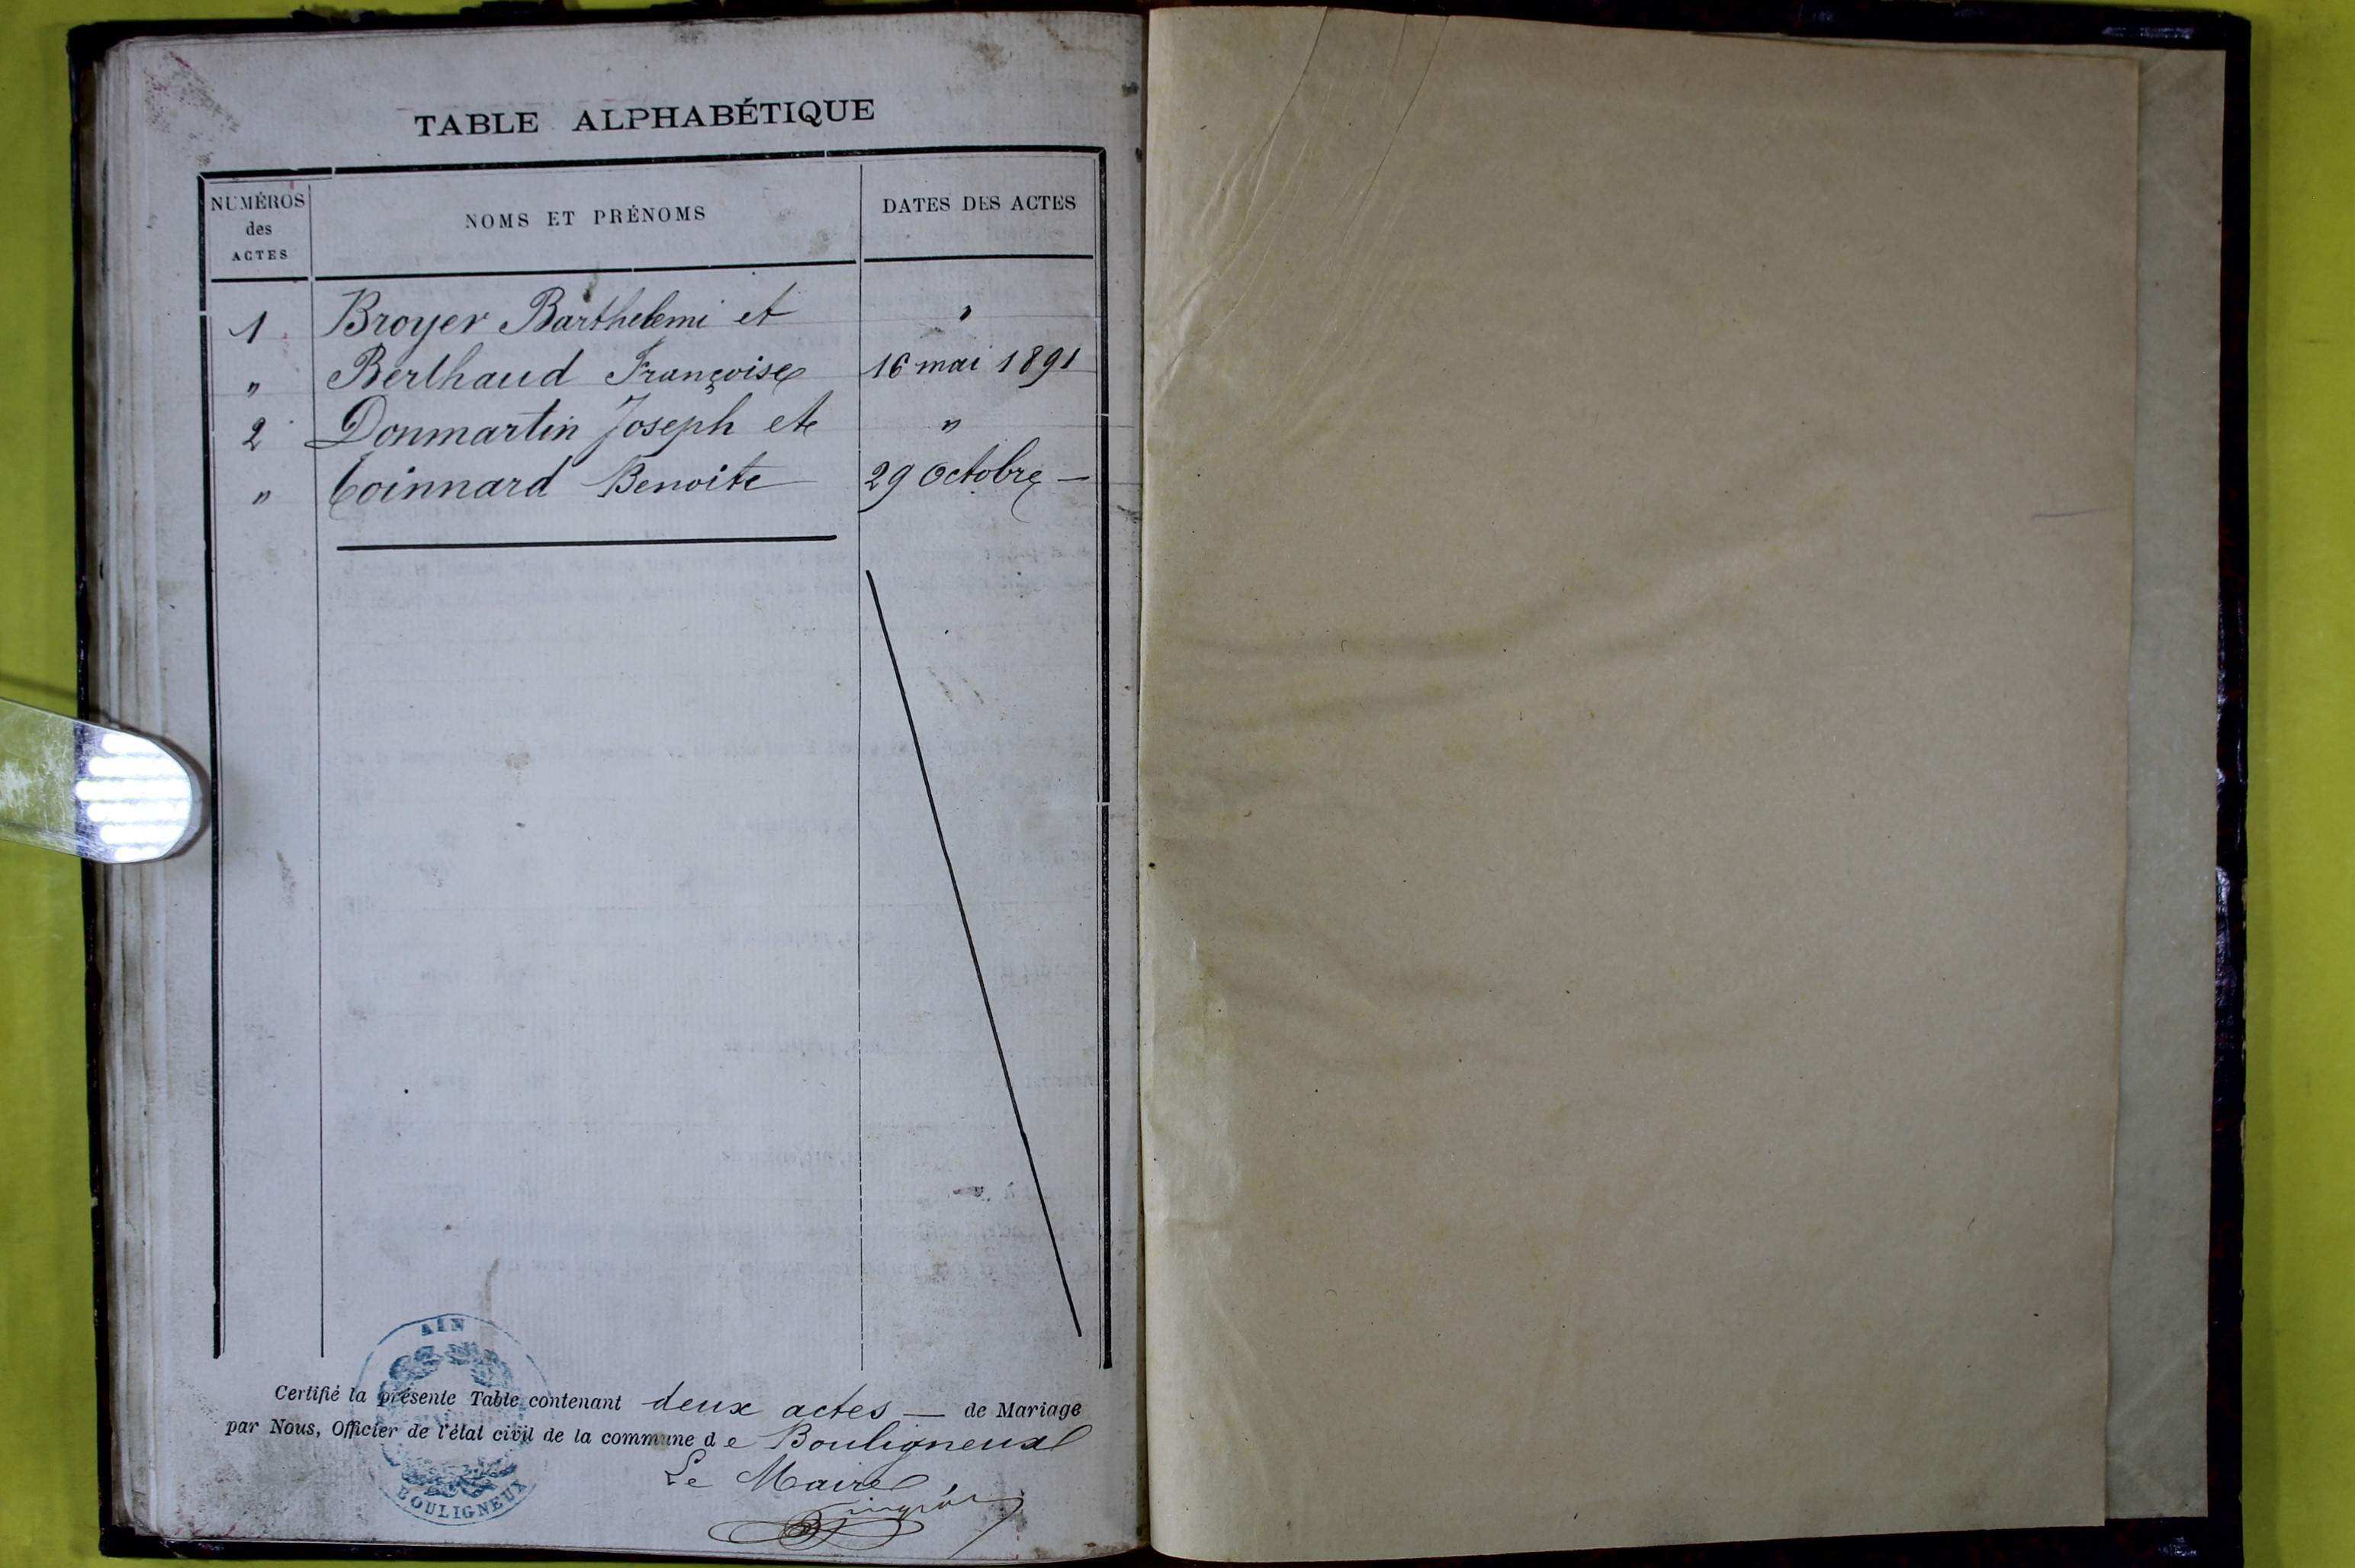 TABLE ALPHABÉTIQUE
NUMÉROS des ACTES NOMS ET PRÉNOMS DATES DES ACTES
1 Broyer Barthelemi et "
" Berthaud Françoise 16 mai 1891
2 Donmartin Joseph et "
" Coinnard Benoite 29 Octobre —
AIN
Certifié la présente Table contenant deux actes — de Mariage
par Nous, Officier de l'état civil de la commune de Bouligneux
Le Maire
BOULIGNEUX